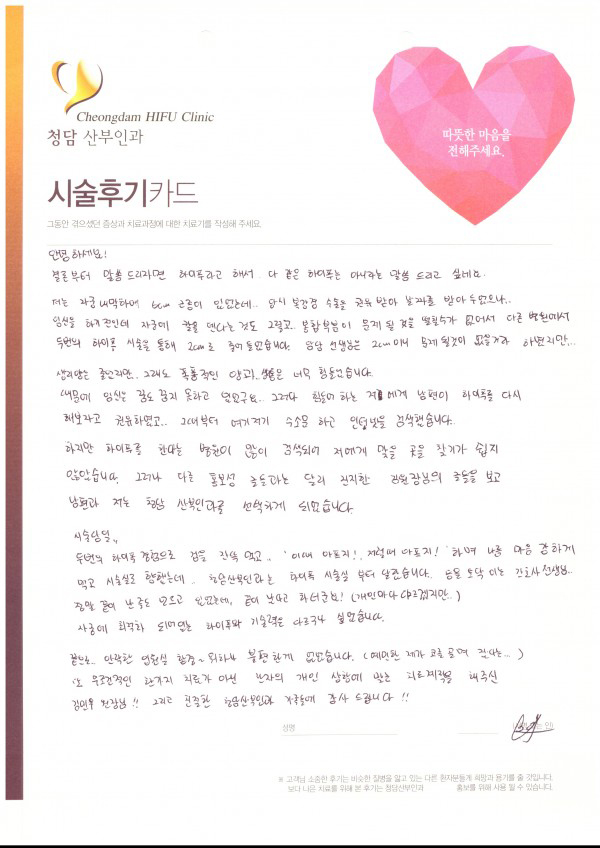 Cheongdam HIFU Clinic
청담 산부인과
따뜻한 마음을
전해주세요.
시술후기카드
그동안 겪으셨던 증상과 치료과정에 대한 치료기를 작성해 주세요.
안녕하세요!
결론부터 말씀 드리자면 하이푸라고 해서 다 같은 하이푸는 아니라는 말씀 드리고 싶네요.
저는 자궁내막하에 6cm 근종이 있었는데.. 당시 복강경 수술을 권유 받아 날짜를 받아 두었으나..
임신을 하기전인데 자궁에 칼을 댄다는것도 그렇고 봉합부분이 문제 될 것을 떨칠수가 없어서 다른 병원에서
두번의 하이푸 시술을 통해 2cm로 줄여 놓았습니다. 담당 선생님은 2cm이니 문제 될것이 없을거라 하셨지만...
생리양은 줄었지만.. 그래도 폭풍적인 양과 생활은 너무 힘들었습니다.
때문에 임신은 꿈도 꾸지 못하고 있었구요.. 그러다 힘들어 하는 저에게 남편이 하이푸를 다시
해보자고 권유하였고.. 그때부터 여기저기 수소문 하고 인터넷을 검색했습니다.
하지만 하이푸를 한다는 병원이 많이 검색되어 저에게 맞을 곳을 찾기가 쉽지
않았습니다. 그러다 다른 홍보성 글들과는 달리 진지한 원장님의 글들을 보고
남편과 저는 청담 산부인과를 선택하게 되었습니다.
시술당일,,
두번의 하이푸 경험으로 겁을 잔뜩 먹고.. '이때 아프지! 저럴때 아프지!' 하며 나름 마음 단단하게
먹고 시술실로 향했는데.. 청담산부인과는 하이푸 시술실 부터 달랐습니다. 등을 토닥 이는 간호사선생님..
정말 끝이 난 줄도 모르고 있었는데, 끝이 났다고 하더군요! (개인마다 다르겠지만..)
자궁에 최적화 되어있는 하이푸와 기술력은 다르구나 싶었습니다.
끝으로.. 안락한 입원실 환경은 더하나 불편한게 없었습니다. (예민한 제가 코를 골며 잤다는...)
또 무조건적인 한가지 치료가 아닌 환자의 개인 상황에 맞는 치료계획을 해주신
김민우 원장님!! 그리고 친절한 청담산부인과 식구들께 감사 드립니다!!
성명
※ 고객님 소중한 후기는 비슷한 질병을 앓고 있는 다른 환자분들께 희망과 용기를 줄 것입니다.
보다 나은 치료를 위해 본 후기는 청담산부인과 홍보를 위해 사용 될 수 있습니다.